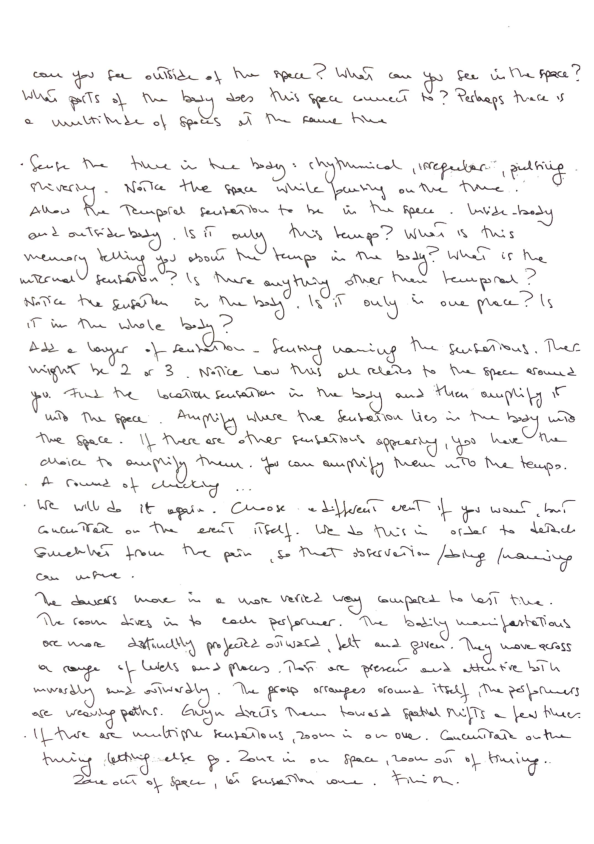 can you see outside of the space? What can you see in the space?
What parts of the body does this space connect to? Perhaps there is
a multitude of spaces at the same time
· Sense the time in the body: rhythmical, irregular, pulsing
shivering. Notice the space while focusing on the time..
Allow the Temporal sensation to be in the space. Inside-body
and outside body. Is it only this tempo? What is this
memory telling you about the tempo in the body? What is the
internal sensation? Is there anything other than temporal?
Notice the sensation in the body. Is it only in one place? Is
it in the whole body?
Add a layer of sensation - sensing naming the sensations. There
might be 2 or 3. Notice how this all relates to the space around
you. Find the location sensation in the body and then amplify it
into the space. Amplify where the sensation lies in the body into
the space. If there are other sensations appearing, you have the
choice to amplify them. You can amplify them into the tempo.
· A round of checking ...
· We will do it again. Choose a different event if you want, but
concentrate on the event itself. We do this in order to detach
somewhat from the pain, so that observation/doing/naming
can
The dancers move in a more varied way compared to last time.
The room dives in to each performer. The bodily manifestations
are more distinctly projected outward, felt and given. They move across
a range of levels and places. That are present and attentive both
inwardly and outwardly. The group arranges around itself, the performers
are weaving paths. Gwyn directs them toward spatial shifts a few times.
· If there are multiple sensations, zoom in on one. Concentrate on the
timing, letting else go. Zone in on space, zoom out of timing..
Zone out of space, let sensation come. Finish.